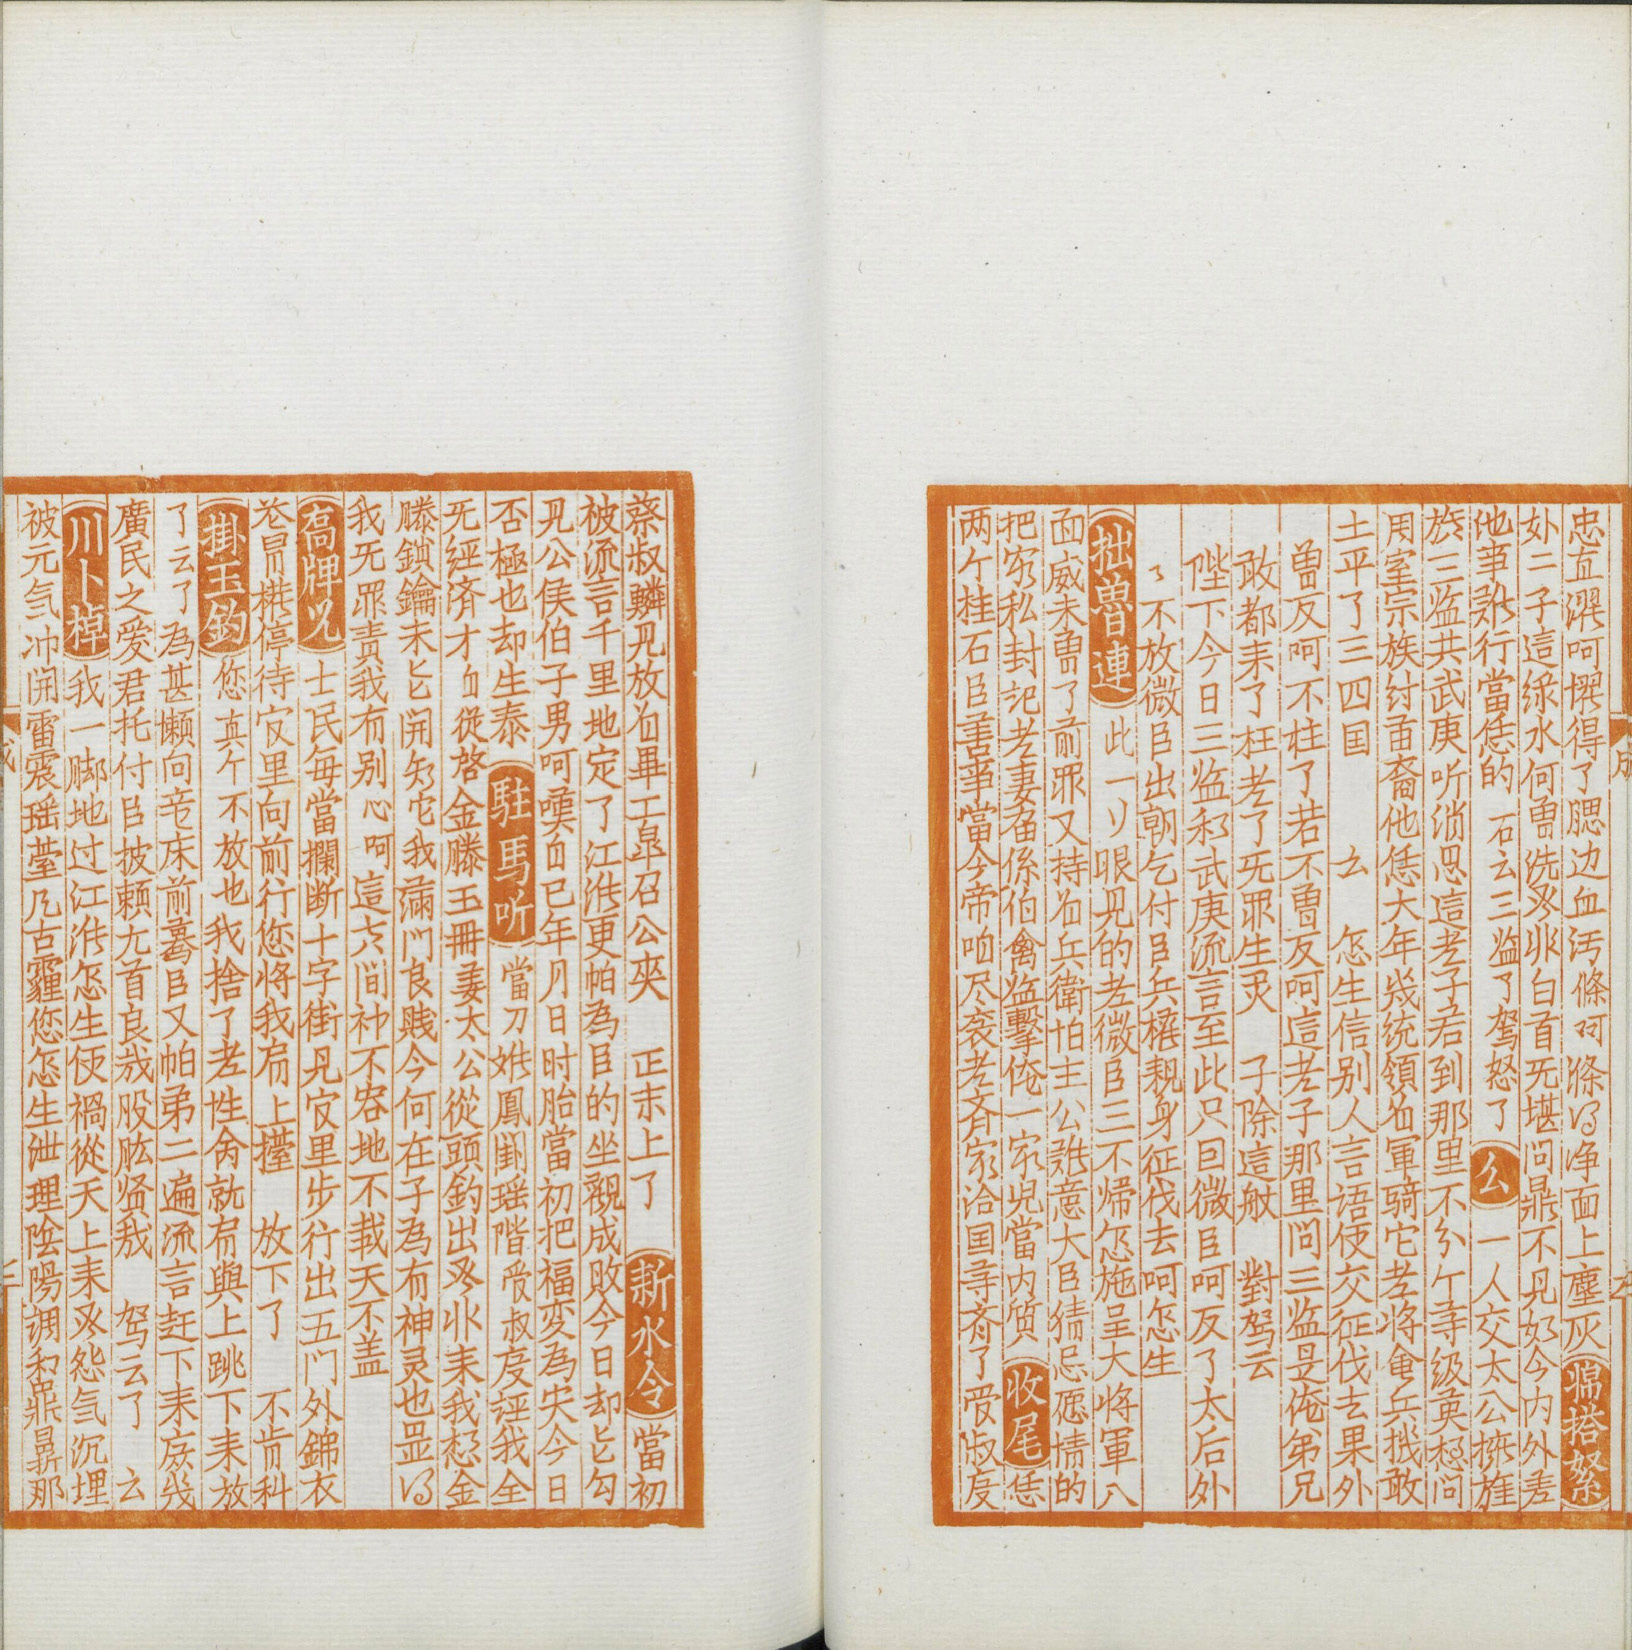 忠直潠呵噀得了腮边血污條對條淂净面上塵灰 綿搭絮
処二子這緑水何曽洗叐非白首无堪问鼎不見奴今内外差
他事難行當恁的 石云三监了驾怒了 幺 一人交太公擁旌
族三监共武庚听消息這老子若到那里不分个等级英想问
用室宗族纣畨裔他恁大年㡬统領着軍骑它老将会兵機敢
土平了三四国 幺 怎生信别人言语使交征伐去果外
曽反呵不枉了若不曽反呵這老子那里问三监是俺弟兄
敢都来了枉老了无罪生灵 子除這般 對驾云
陛下今日三监和武庚流言至此只囙微臣呵反了太后外
〻不放微臣出朝乞付臣兵權親身征伐去呵怎生
拙魯速 此一以眼見的老微臣三不歸怎施呈大将軍八
面威未曽了前罪又持着兵衛怕主公難意大臣猜忌愿情的
把家私封记老妻留係伯禽监擊俺一家児當内質 收尾 恁
两个柱石臣善事當今帝咱尽衮老斉家治国等斉了霍叔度
蔡叔鳞見放着畢工皐召公夾 正末上了 新水令 當初
被流言千里地定了江淮更怕為臣的坐觀成敗今日却匕勾
見公侯伯子男呵嘆自己年月日时胎當初把福变為灾今日
否極也却生泰 駐馬听 當刀姚鳳闈瑶階受叔度誣我全
无經済才自從啓金滕玉冊姜太公從頭釣出叐非来我想金
滕鎖鑰未匕開知它我满门良贱今何在子為有神灵也罡淂
我无罪责我有别心呵這六间神不容地不载天不盖
高牌児 士民每當攔断十字街見宜里步行出五门外錦衣
花冐拱停待宜里向前行您将我扃上擡 放下了 不肯科
掛玉鈎 您真个不放也我捨了老性命就扃輿上跳下来放
了云了為甚懶向龙床前驀臣又怕弟二遍流言赶下来庶㡬
廣民之爱君托付臣披頼尢首良哉股肱贤哉 驾云了 云
川卜棹 我一脚地过江淮怎生使禍從天上来叐怨气沉埋
被元气冲開雷震瑶臺凡古霾您怎生泄理陰陽调和鼎鼐那